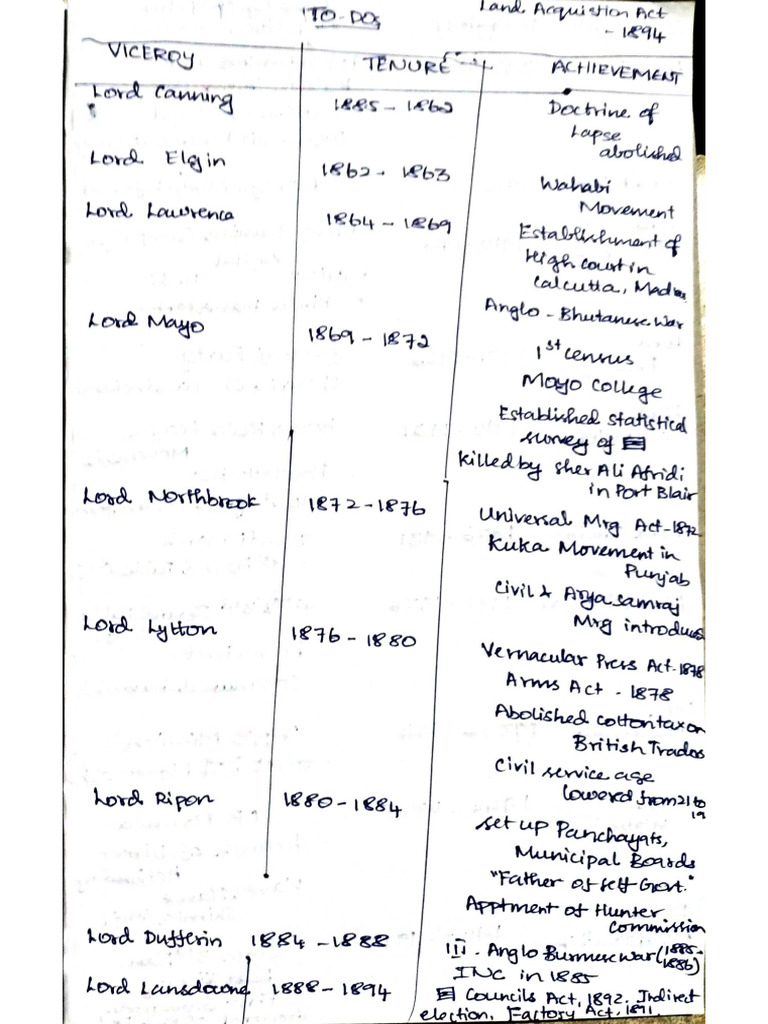 TO-DOs
Land Acquistion Act
- 1894
VICEROY TENURE ACHIEVEMENT
Lord Canning 1885 - 1862 Doctrine of
Lapse
abolished
Lord Elgin 1862 - 1863 Wahabi
Movement
Lord Lawrence 1864 - 1869 Establishment of
High court in
Calcutta, Madras
Anglo - Bhutanese War
Lord Mayo 1869 - 1872 1st census
Mayo College
Established statistical
survey of
killed by Sher Ali Afridi
in Port Blair
Lord Northbrook 1872 - 1876 Universal Mrg Act - 1872
Kuka Movement in
Punjab
Civil & Arya samraj
Mrg introduced
Lord Lytton 1876 - 1880 Vernacular Press Act - 1878
Arms Act - 1878
Abolished cotton tax on
British Trades
Civil service age
lowered from 21 to
19
Lord Ripon 1880 - 1884 set up Panchayats,
Municipal Boards
"Father of self Govt."
Apptment of Hunter
Commission
Lord Dufferin 1884 - 1888 III. Anglo Burmese War (1885-
1886)
INC in 1885
Lord Lansdowne 1888 - 1894 Councils Act, 1892. Indirect
election, Factory Act, 1891.